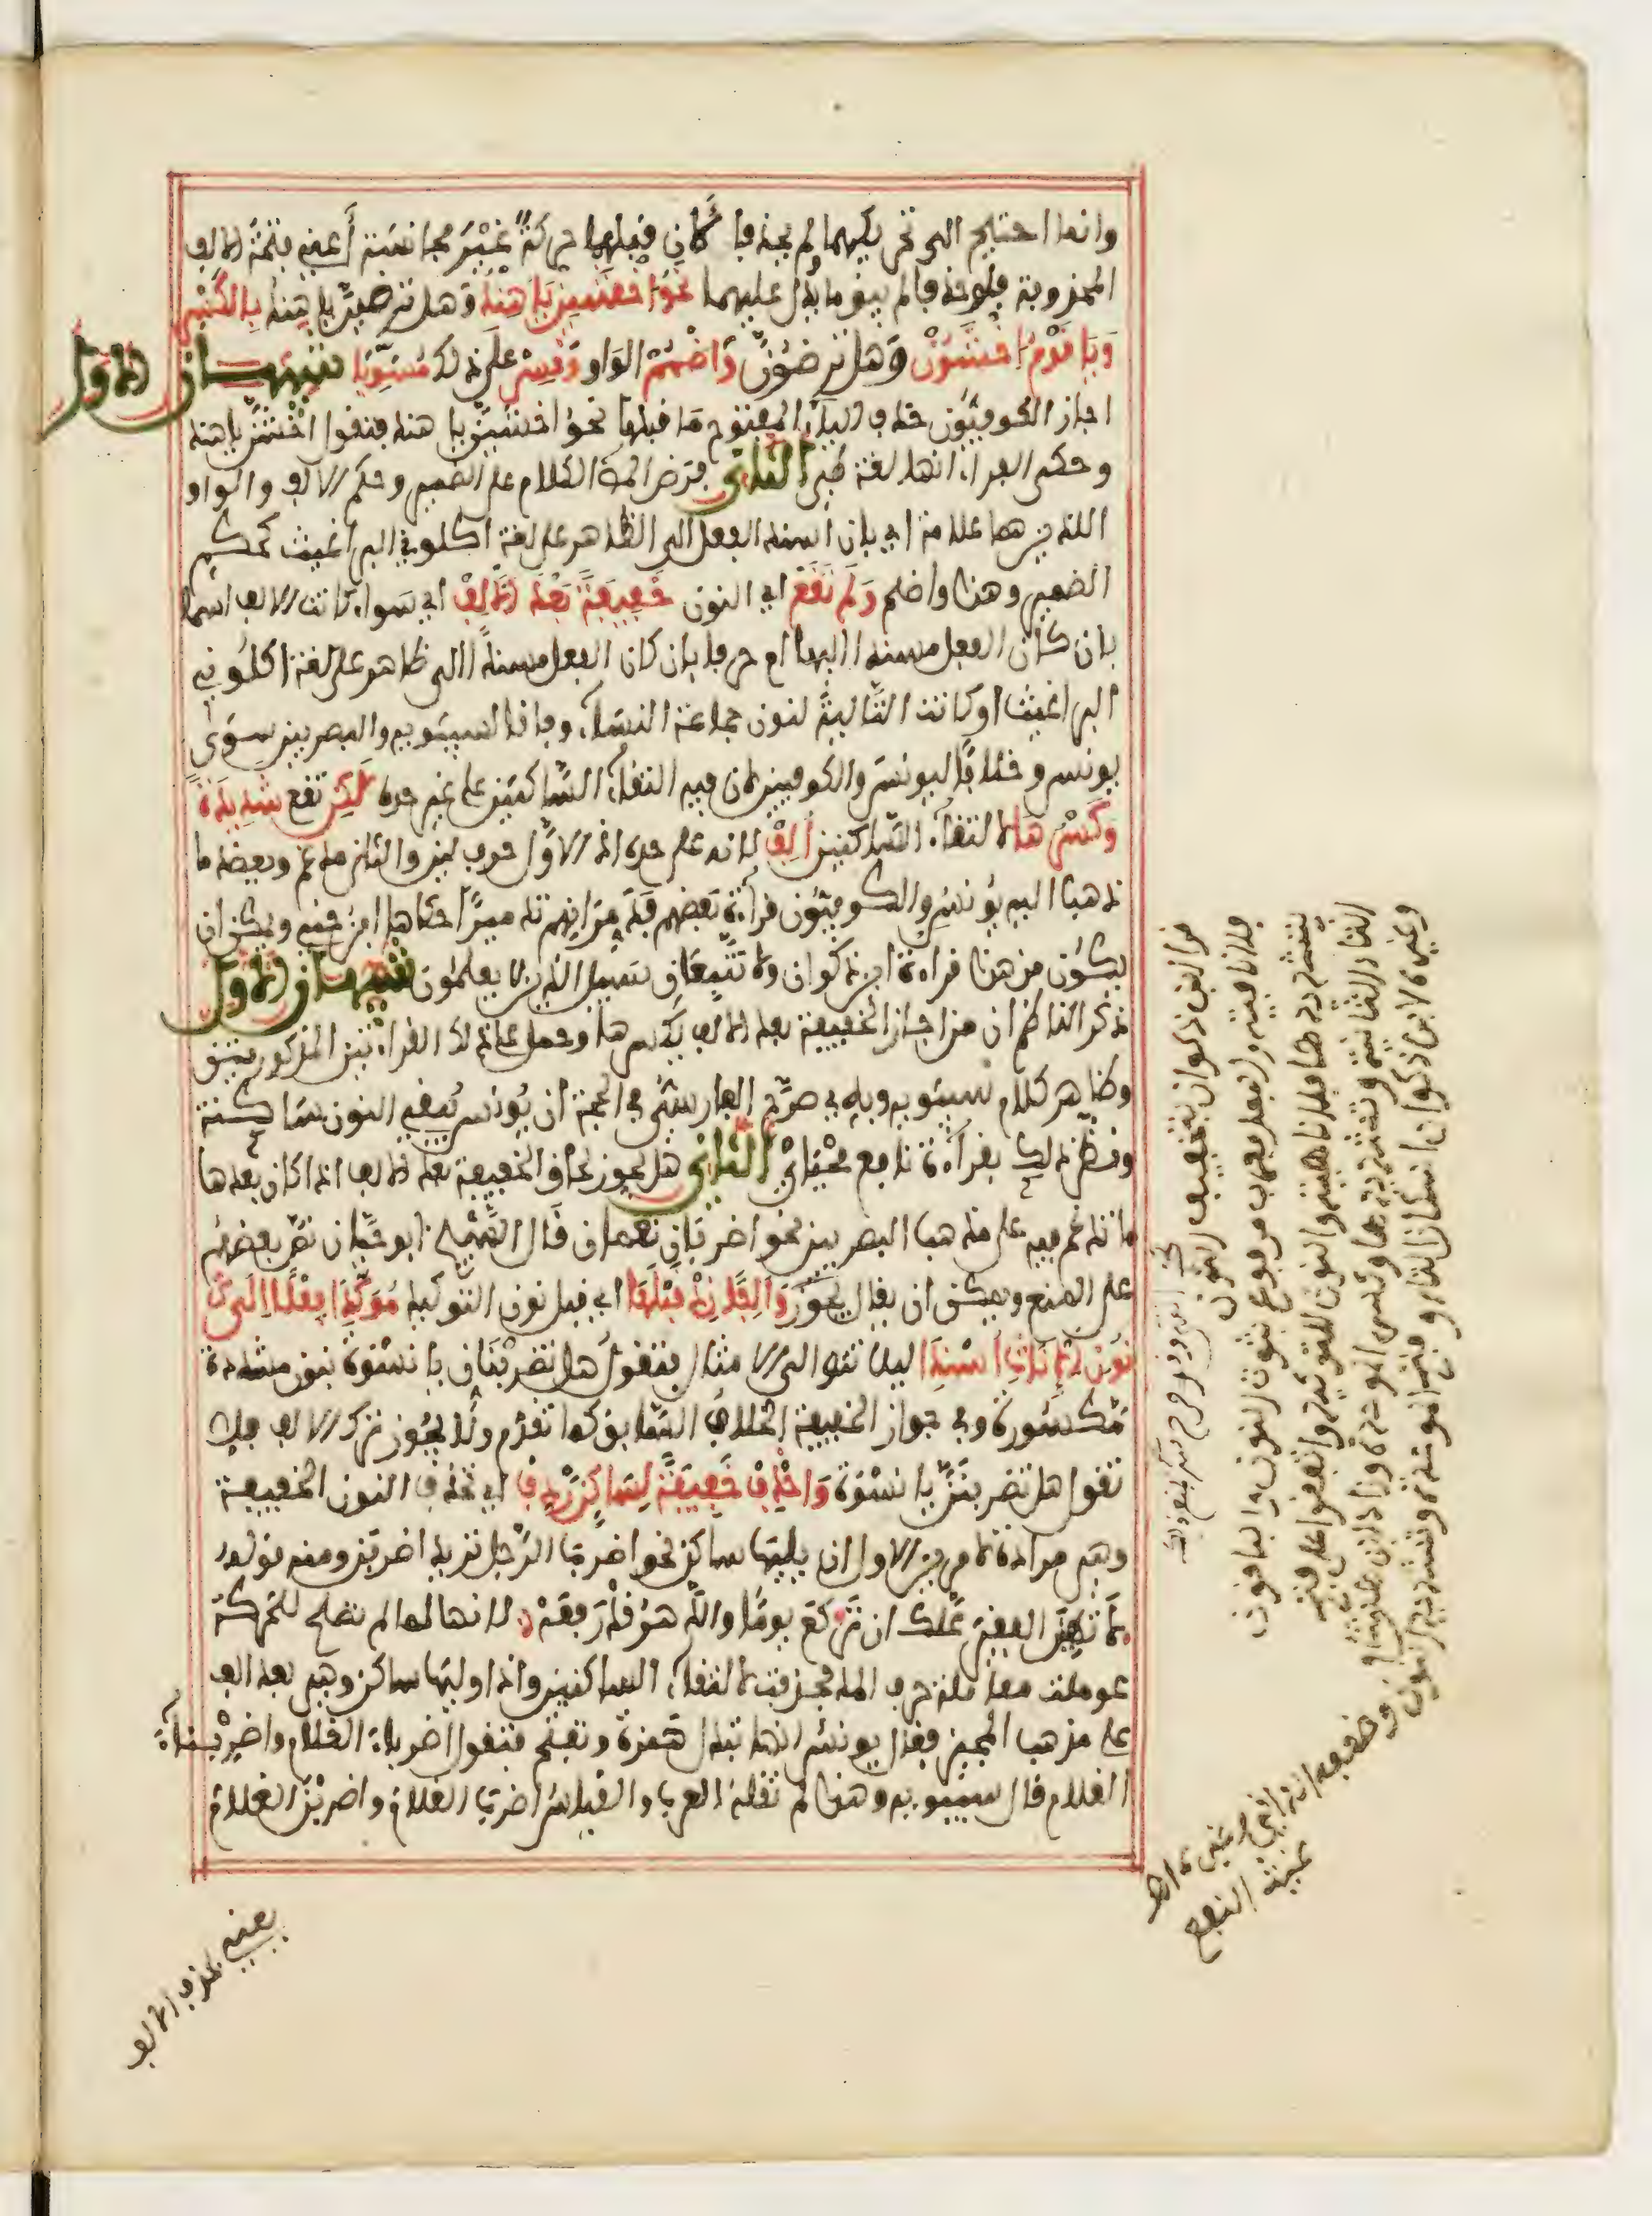 وانما احتيج الى تحريكهما ولم يحذفا لان قبلهما حركة غير مجانسة أعني فتحة الالف
المحذوفة فلو حذفا لم يبق ما يدل عليهما نحو اخشين يا هند وهل ترضين يا هند بالكسر
ويا قوم اخشون وهل ترضون واضمم الواو وقس على ذلك مسويا تنبيهان الاول
اجاز الكوفيون حذف الياء المفتوح ما قبلها نحو اخشين يا هند فتقول اخشن يا هند
وحكى الفراء انها لغة طيئ الثاني فرض المص الكلام على الضمير وحكم الالف والواو
اللذين هما علامة اي بان اسند الفعل الى الظاهر على لغة اكلوني البراغيث كحكم
الضمير وهذا واضح ولم تقع اي النون خفيفة بعد الالف اي سواء كانت الالف اسما
بان كان الفعل مسندا اليها ام حرفا بان كان الفعل مسندا الى ظاهر على لغة اكلوني
البراغيث او كانت التالية لنون جماعة النساء وفاقا لسيبويه والبصريين سوى
يونس وخلافا ليونس والكوفيين لان فيه التقاء الساكنين على غير حده لكن تقع شديدة
وكسرها لالتقاء الساكنين الف لانه على حده اذ الاول حرف لين والثاني مدغم ويعضد ما
ذهب اليه يونس والكوفيون قراءة بعضهم فدمرانهم تدميرا حكاها ابن جني ويمكن ان
يكون من هذا قراءة ابن ذكوان ولا تتبعان سبيل الذين لا يعلمون تنبيهان الاول
ذكر الناظم ان من اجاز الخفيفة بعد الالف يكسرها وحمل على ذلك القراءتين المذكورتين
وظاهر كلام سيبويه وبه صرح الفارسي في الحجة ان يونس يبقي النون ساكنة
ونظر ذلك بقراءة نافع محياي الثاني هل يجوز لحاق الخفيفة بعد الالف اذا كان بعدها
ما تدغم فيه على مذهب البصريين نحو اضربان نعمان قال الشيخ ابو حيان نص بعضهم
على المنع ويمكن ان يقال يجوز والفا زد قبلها اي قبل نون التوكيد مؤكدا فعلا الى
نون الاناث اسندا ليلا تتوالى الامثال فتقول هل تضربنان يا نسوة بنون مشددة
مكسورة وفي جواز الخفيفة الخلاف السابق كما تقدم ولا يجوز ترك الالف فلا
تقول هل تضربنن يا نسوة واحذف خفيفة لساكن ردف اي تحذف النون الخفيفة
وهي مرادة لامرين الاول ان يليها ساكن نحو اضرب الرجل تريد اضربن ومنه قوله
لا تهين الفقير علك ان تركع يوما والدهر قد رفعه لانها لما لم تصلح للحركة
عوملت معاملة حرف المد فحذفت لالتقاء الساكنين واذا وليها ساكن وهي بعد الف
على مذهب المجيز فقال يونس انها تبدل همزة وتفتح فتقول اضرباء الغلام واضربناء
الغلام قال سيبويه وهذا لم تقله العرب والقياس اضربا الغلام واضربن الغلام
قرا ابن ذكوان بتخفيف النون
فلا نافية والفعل معرب مرفوع بثبوت النون والباقون
بتشديدها فلا ناهية والنون للتوكيد واتفقوا على فتح
التاء الثانية وتشديدها وكسر الموحدة
وغيره لابن ذكوان اسكان التاء وفتح الموحدة وتشديد النون
غيث النفع
يعني بحذف الالف